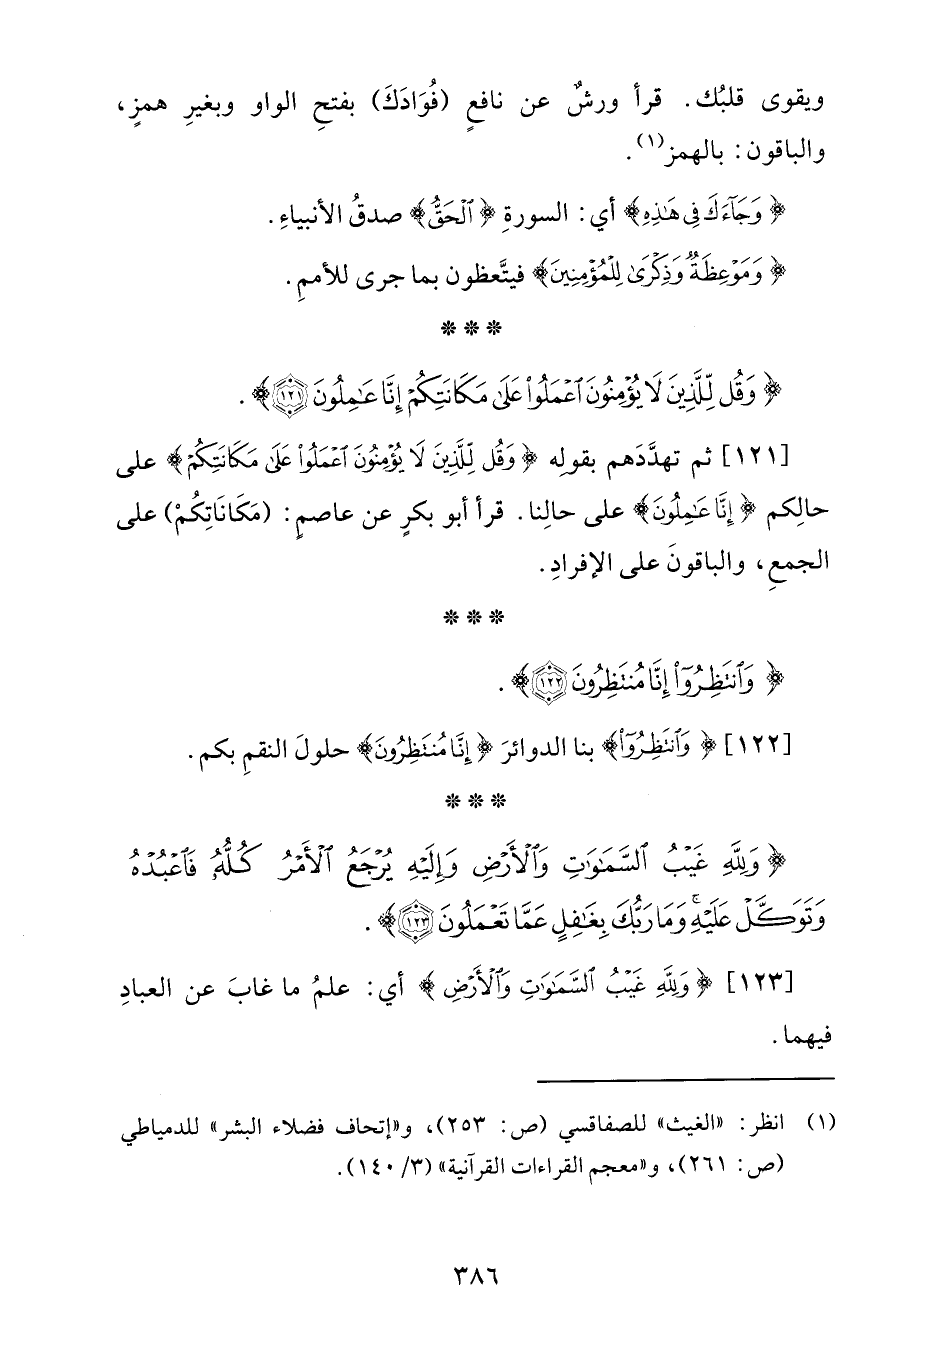 ويقوى قلبُك. قرأ ورشٌ عن نافعٍ (فُوَادَكَ) بفتحِ الواو وبغيرِ همزٍ،
والباقون: بالهمز(١).
﴿وَجَآءَكَ فِي هَٰذِهِ﴾ أي: السورةِ ﴿ٱلْحَقُّ﴾ صدقُ الأنبياءِ.
﴿وَمَوْعِظَةٌ وَذِكْرَىٰ لِلْمُؤْمِنِينَ﴾ فيتَّعظون بما جرى للأممِ.
* * *
﴿وَقُل لِّلَّذِينَ لَا يُؤْمِنُونَ ٱعْمَلُوا۟ عَلَىٰ مَكَانَتِكُمْ إِنَّا عَٰمِلُونَ ١٢١﴾.
[١٢١] ثم تهدَّدَهم بقولِه ﴿وَقُل لِّلَّذِينَ لَا يُؤْمِنُونَ ٱعْمَلُوا۟ عَلَىٰ مَكَانَتِكُمْ﴾ على
حالِكم ﴿إِنَّا عَٰمِلُونَ﴾ على حالِنا. قرأ أبو بكرٍ عن عاصمٍ: (مَكَانَاتِكُمْ) على
الجمعِ، والباقونَ على الإفرادِ.
* * *
﴿وَٱنتَظِرُوٓا۟ إِنَّا مُنتَظِرُونَ ١٢٢﴾.
[١٢٢] ﴿وَٱنتَظِرُوٓا۟﴾ بنا الدوائرَ ﴿إِنَّا مُنتَظِرُونَ﴾ حلولَ النقمِ بكم.
* * *
﴿وَلِلَّهِ غَيْبُ ٱلسَّمَٰوَٰتِ وَٱلْأَرْضِ وَإِلَيْهِ يُرْجَعُ ٱلْأَمْرُ كُلُّهُۥ فَٱعْبُدْهُ
وَتَوَكَّلْ عَلَيْهِ ۚ وَمَا رَبُّكَ بِغَٰفِلٍ عَمَّا تَعْمَلُونَ ١٢٣﴾.
[١٢٣] ﴿وَلِلَّهِ غَيْبُ ٱلسَّمَٰوَٰتِ وَٱلْأَرْضِ﴾ أي: علمُ ما غابَ عن العبادِ
فيهما.
(١) انظر: «الغيث» للصفاقسي (ص: ٢٥٣)، و«إتحاف فضلاء البشر» للدمياطي
(ص: ٢٦١)، و«معجم القراءات القرآنية» (٣/ ١٤٠).
٣٨٦